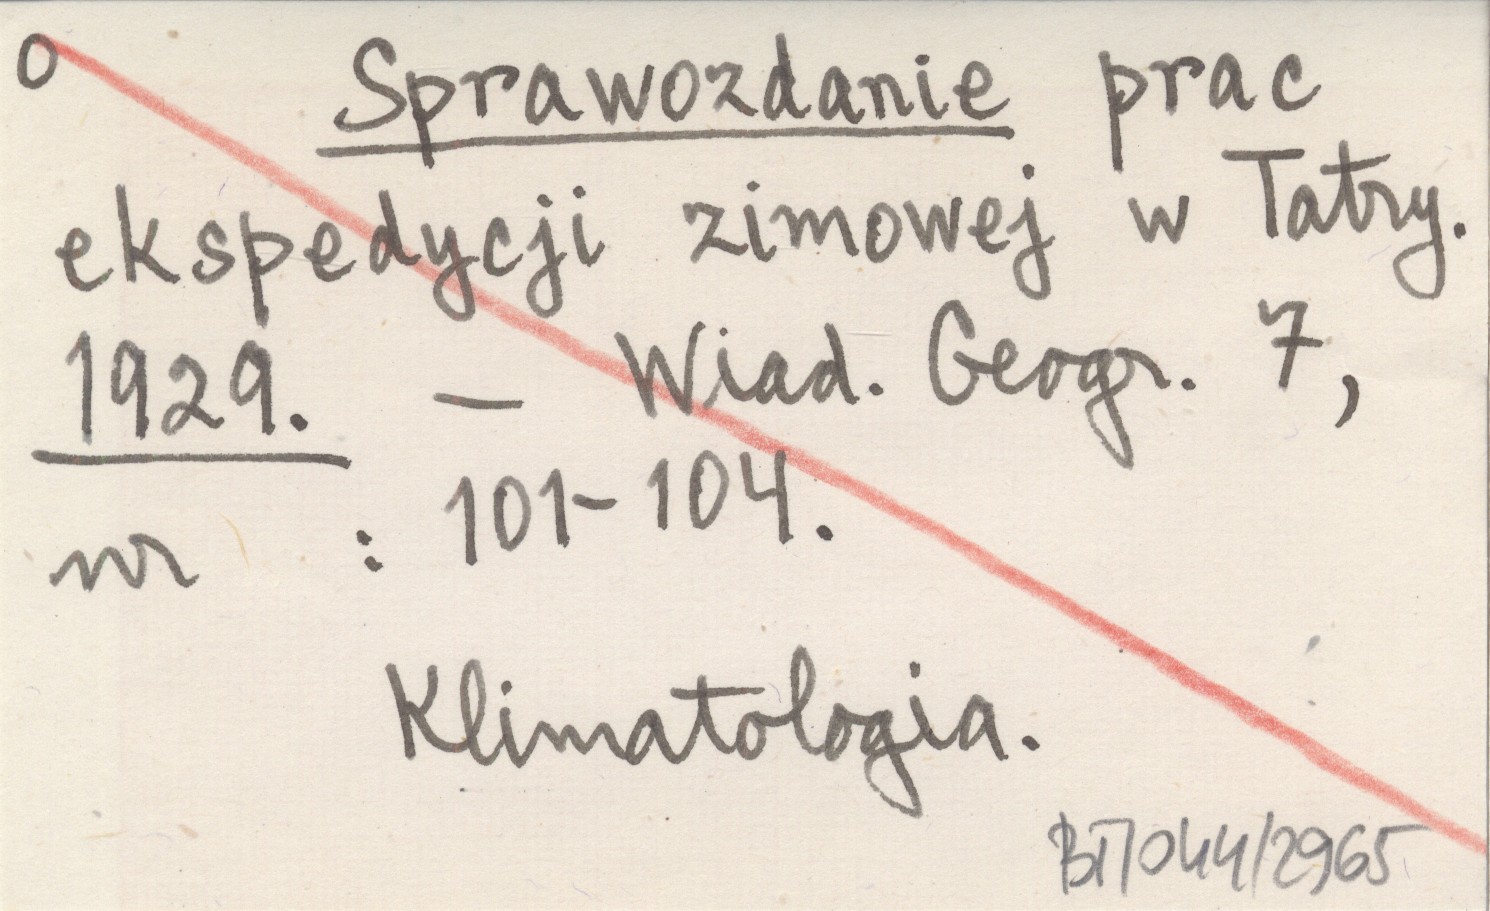 O
Sprawozdanie prac
ekspedycji zimowej w Tatry.
1929. — Wiad. Geogr. 7,
nr : 101-104.
Klimatologia.
BT/044/2965